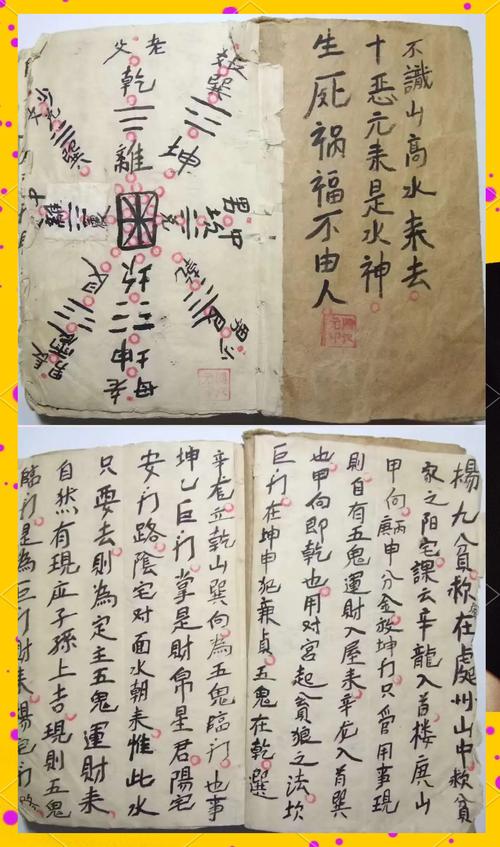 不識山高水来去
十惡元来是水神
生死祸福不由人
老父
乾
離
坤
巽
中男
坎
兌
艮
坎
坤
老母
楊九貧救在處州山中救貧
家之阳宅課云辛龍入首楼庚山
甲向兼申分金放坤门只管用事現
則自有五鬼運財入屋来辛龙入首巽
也甲向即乾也用对宫起貪狼之法坎
巨门在坤申犯亷貞五鬼在乾選
辛龙立乾山巽向為五鬼臨门也事
坤乙巨门掌是財帛星君陽宅
安门路陰宅对面水朝来惟此水
只要去則為定主五鬼運財来
自然有現应子孫上吉現則五鬼
臨门是為巨门財来陽巨门